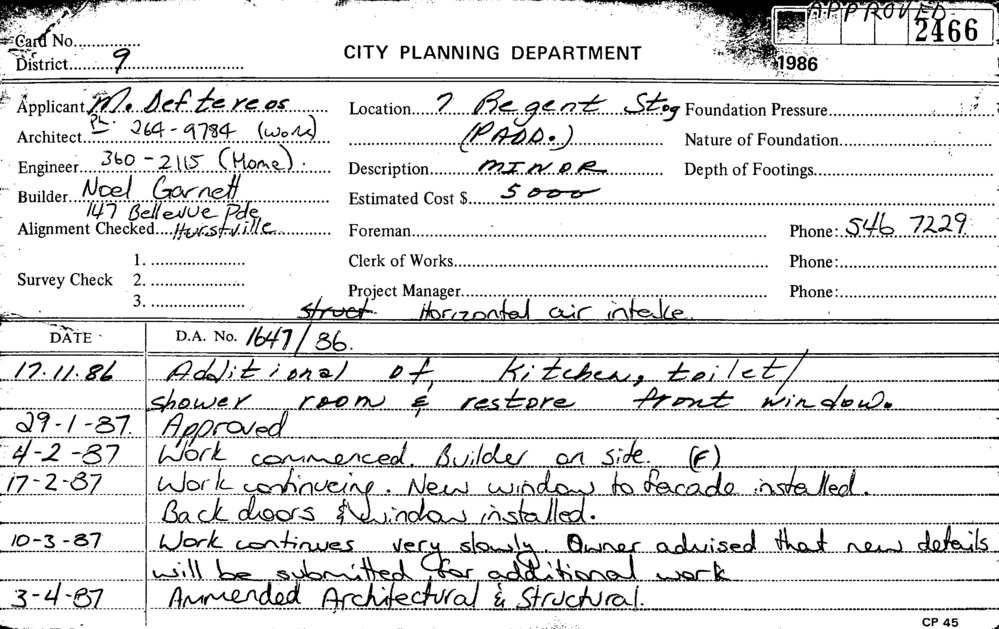 APPROVED
2466
Card No.
District 9
CITY PLANNING DEPARTMENT
1986
Applicant M. Deftereos
Location 7 Regent St
Foundation Pressure
Architect Ph: 264-9784 (Work)
(PADD.)
Nature of Foundation
Engineer 360-2115 (Home).
Description MINOR
Depth of Footings
Builder Noel Garnett
Estimated Cost $ 5000
147 Bellevue Pde
Alignment Checked Hurstville
Foreman
Phone: 546 7229
1.
Clerk of Works
Phone:
Survey Check 2.
3.
Project Manager
Phone:
Struct Horizontal air intake
DATE
D.A. No. 1647/86.
17.11.86 Additional of Kitchen, toilet/
shower room & restore front window.
29-1-87. Approved
4-2-87 Work commenced. Builder on site. (F)
17-2-87 Work continueing. New window to facade installed.
Back doors & window installed.
10-3-87 Work continues very slowly. Owner advised that new details
will be submitted for additional work
3-4-87 Ammended Architectural & Structural.
CP 45